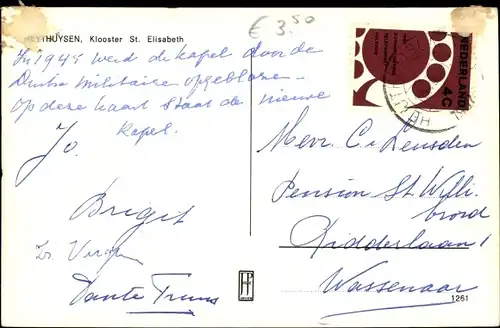 HEYTHUYSEN, Klooster St. Elisabeth
€ 3.50
In 1945 werd de kapel door de
Duitse militairen opgeblazen -
op deze kaart staat de nieuwe
kapel.
Jo.
Brigit
Zr.
Tante Truus
NEDERLAND
4c
Mevr. C. v. Leusden
Pension St. Willi-
brord
Ridderlaan 1
Wassenaar
JP
1261